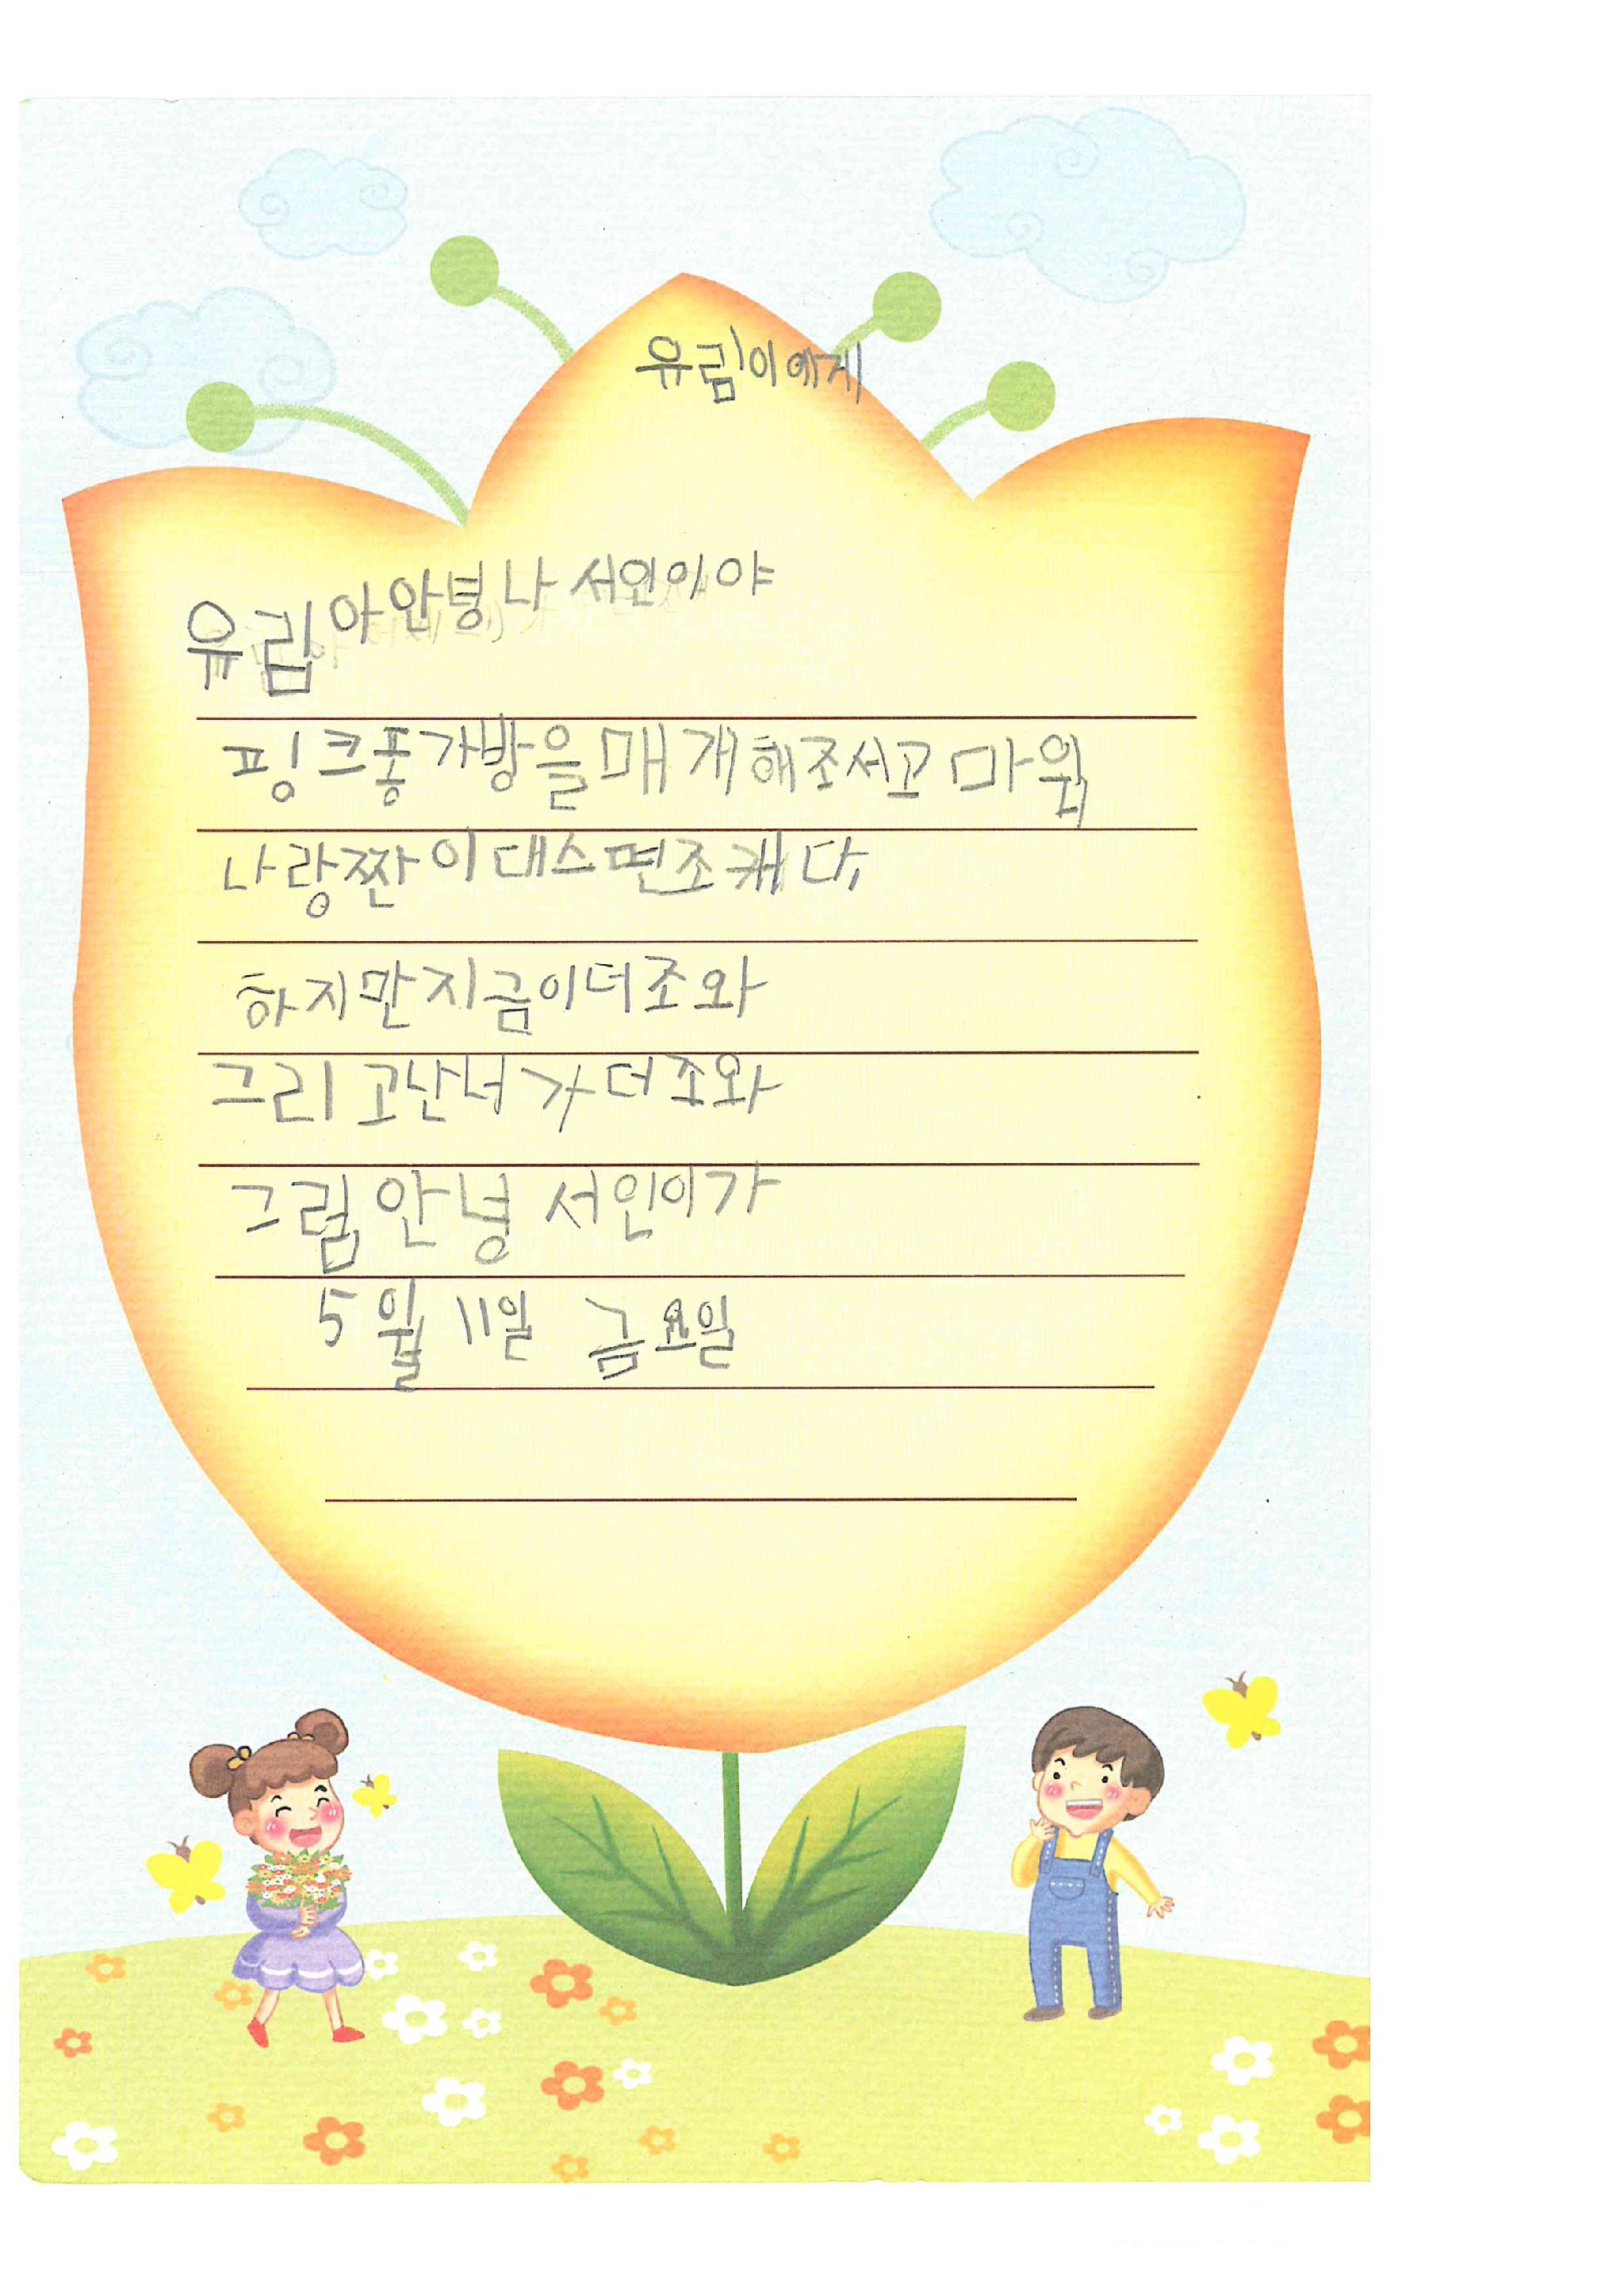 유림이에게
유림아안녕나 서인이야
핑크퐁가방을매개해조서고마워
나랑짠이대스면조캐다
하지만지금이더조와
그리고난너가더조와
그럼안녕 서인이가
5월 11일 금요일